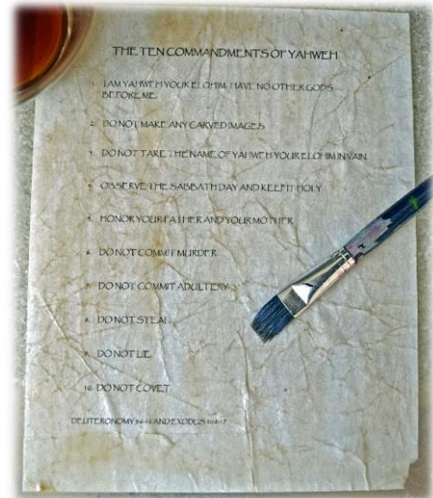 THE TEN COMMANDMENTS OF YAHWEH
1. I AM YAHWEH YOUR ELOHIM. HAVE NO OTHER GODS
BEFORE ME.
2. DO NOT MAKE ANY CARVED IMAGES
3. DO NOT TAKE THE NAME OF YAHWEH YOUR ELOHIM IN VAIN
4. OBSERVE THE SABBATH DAY AND KEEP IT HOLY
5. HONOR YOUR FATHER AND YOUR MOTHER
6. DO NOT COMMIT MURDER
7. DO NOT COMMIT ADULTERY
8. DO NOT STEAL
9. DO NOT LIE
10. DO NOT COVET
DEUTERONOMY AND EXODUS